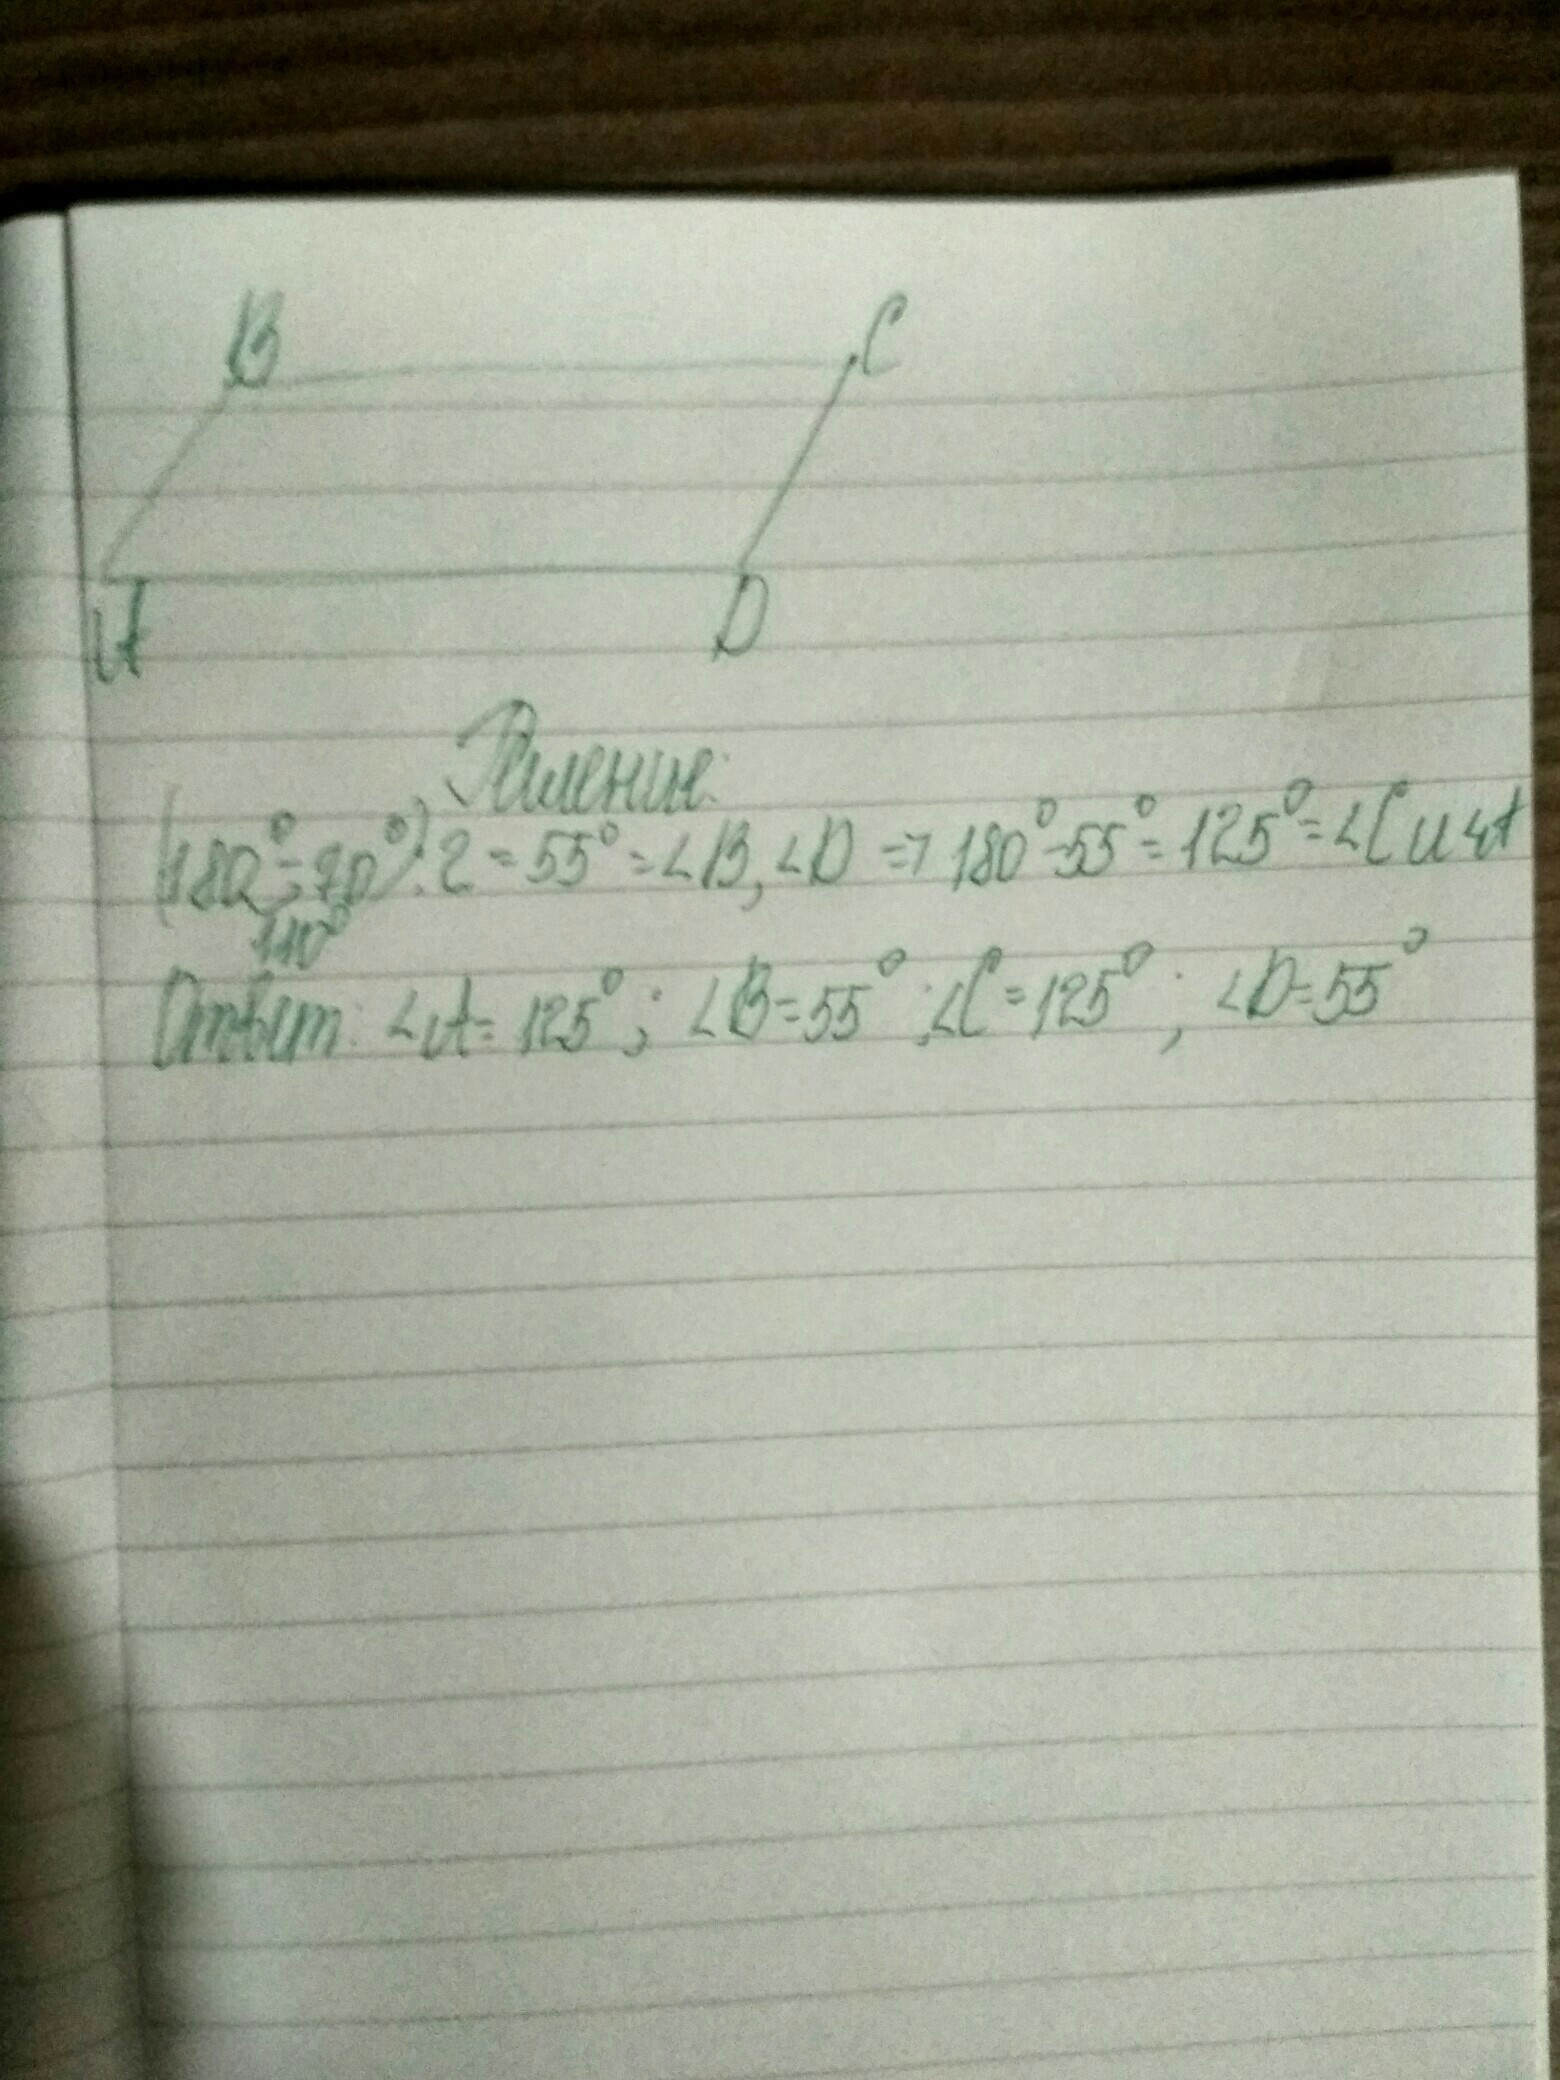 B C
A D
Решение:
(180°-70°):2=55°=∠B,∠D => 180°-55°=125°=∠C и ∠A
110°
Ответ: ∠A=125°; ∠B=55°; ∠C=125°; ∠D=55°